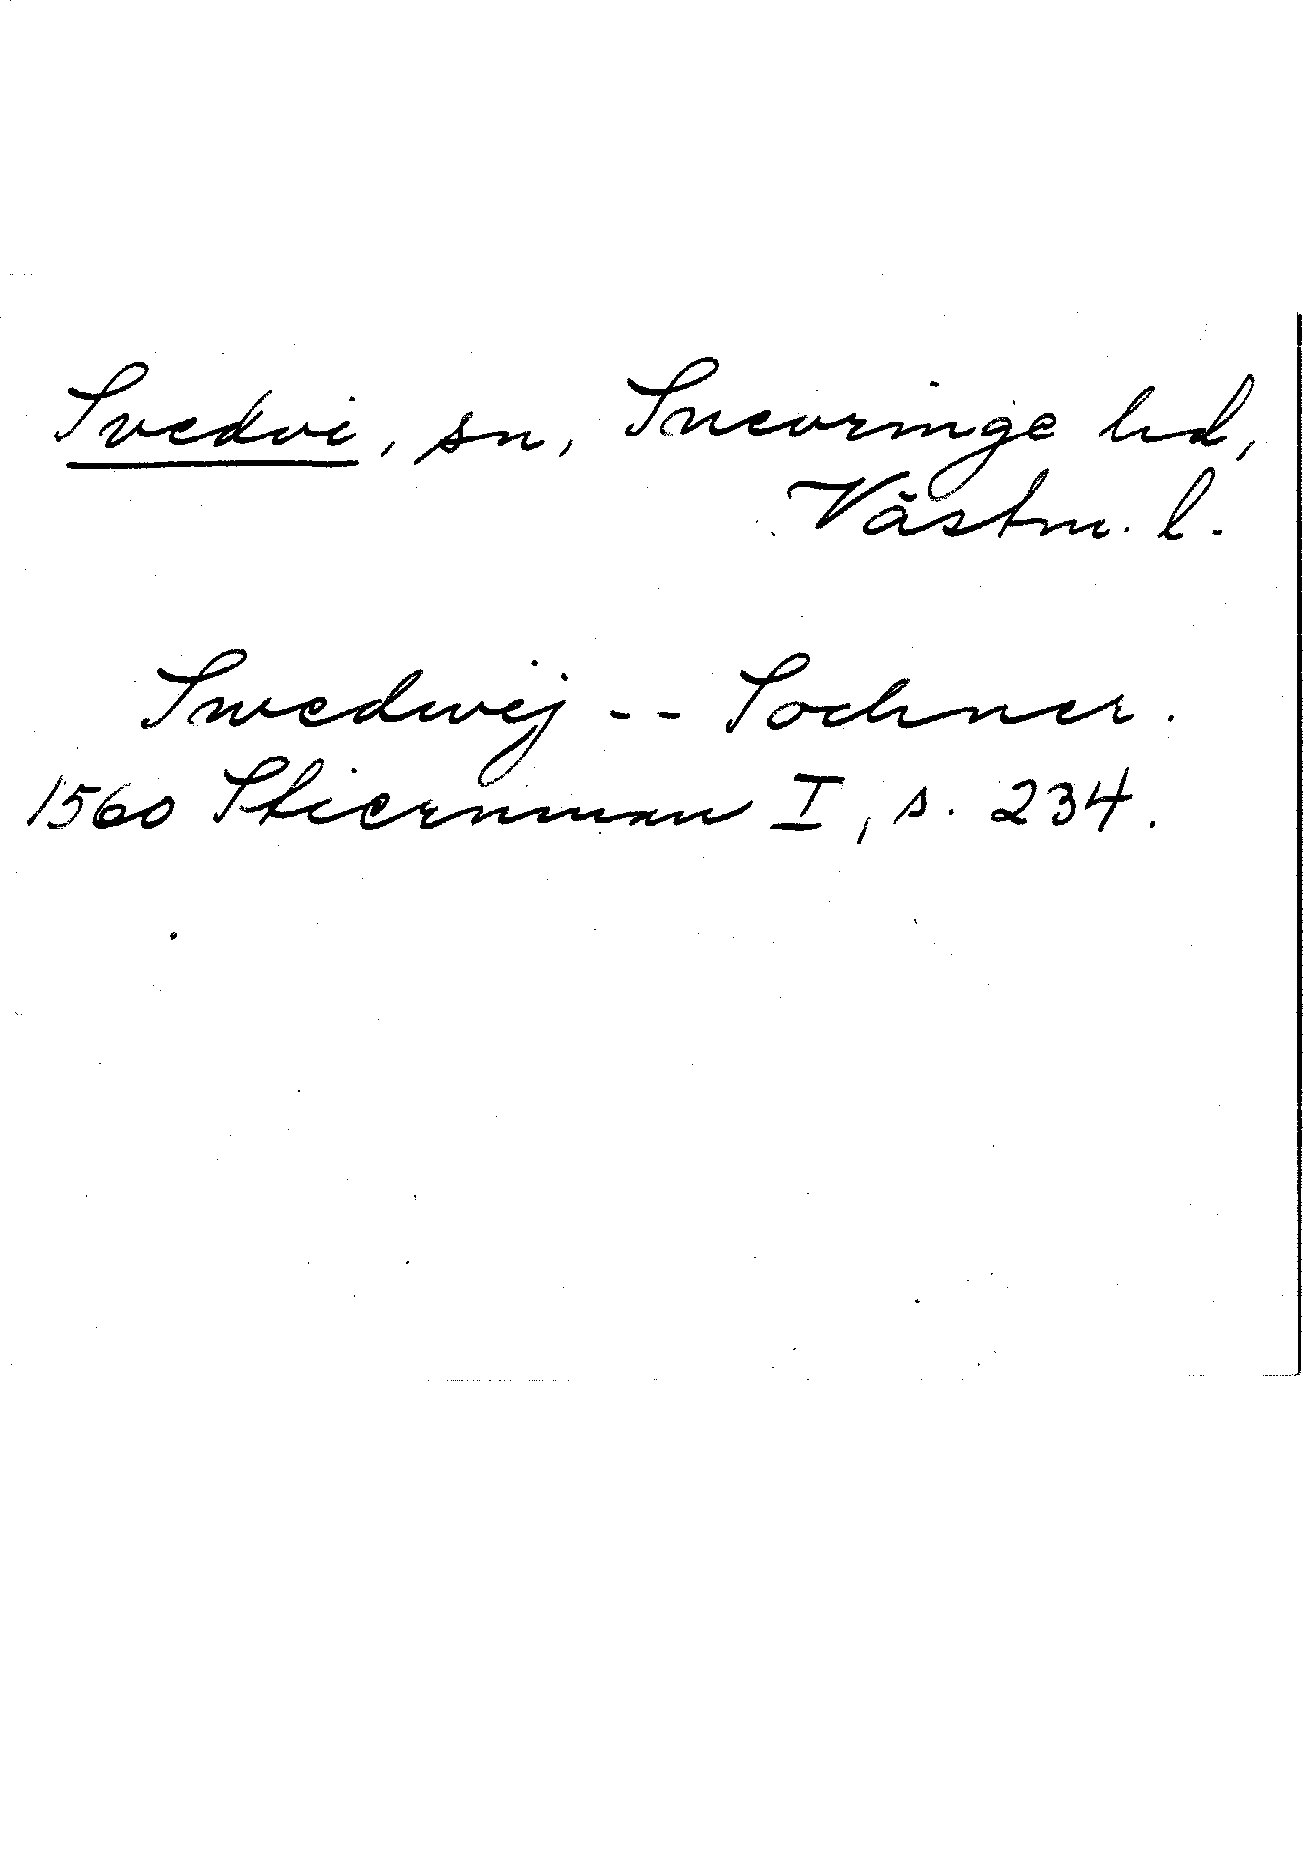 Svedvi, sn, Snevringe hd,
Västm. l.
Swedwij -- Sochner.
1560 Stiernman I, s. 234.